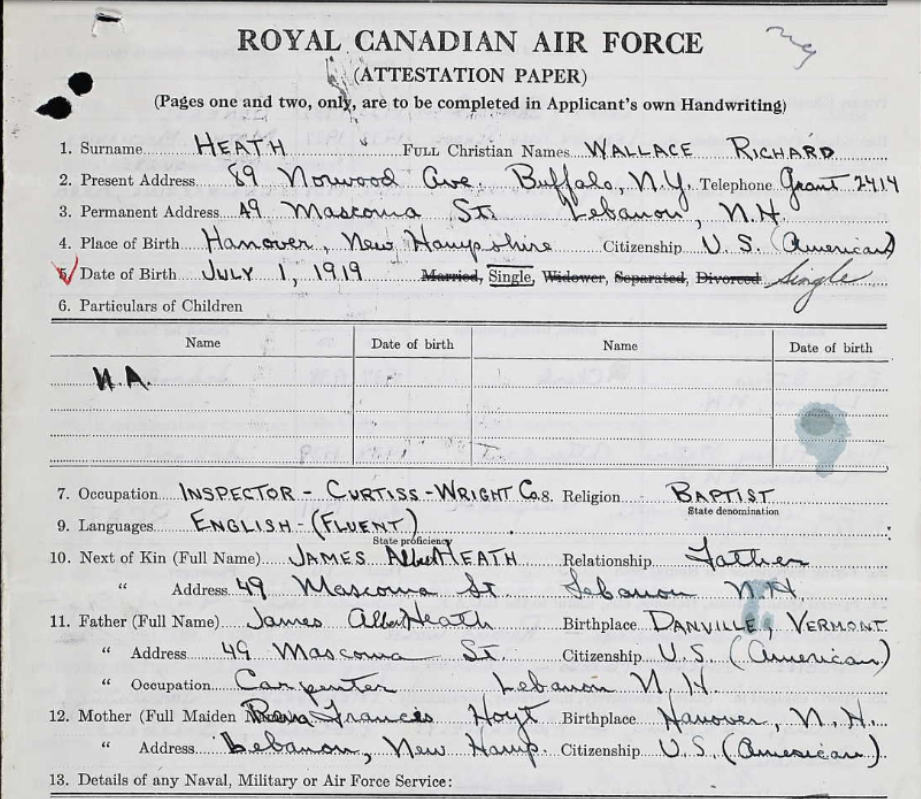 ROYAL CANADIAN AIR FORCE
(ATTESTATION PAPER)
(Pages one and two, only, are to be completed in Applicant's own Handwriting)
1. Surname HEATH FULL Christian Names WALLACE RICHARD
2. Present Address 89 Norwood Ave. Buffalo, N.Y. Telephone Grant 2414
3. Permanent Address 49 Mascoma St. Lebanon, N.H.
4. Place of Birth Hanover, New Hampshire Citizenship U.S. (American)
5. Date of Birth JULY 1, 1919 Married, Single, Widower, Separated, Divorced Single
6. Particulars of Children
Name Date of birth Name Date of birth
N.A.
7. Occupation INSPECTOR - CURTISS-WRIGHT Co. 8. Religion BAPTIST
State denomination
9. Languages ENGLISH - (FLUENT)
State proficiency
10. Next of Kin (Full Name) JAMES Albert HEATH Relationship Father
" Address 49 Mascoma St Lebanon N.H.
11. Father (Full Name) James Albert Heath Birthplace DANVILLE, VERMONT
" Address 49 Mascoma St Citizenship U.S. (American)
" Occupation Carpenter Lebanon N.H.
12. Mother (Full Maiden Frances Hoyt Birthplace Hanover, N.H.
" Address Lebanon, New Hamp. Citizenship U.S. (American)
13. Details of any Naval, Military or Air Force Service: